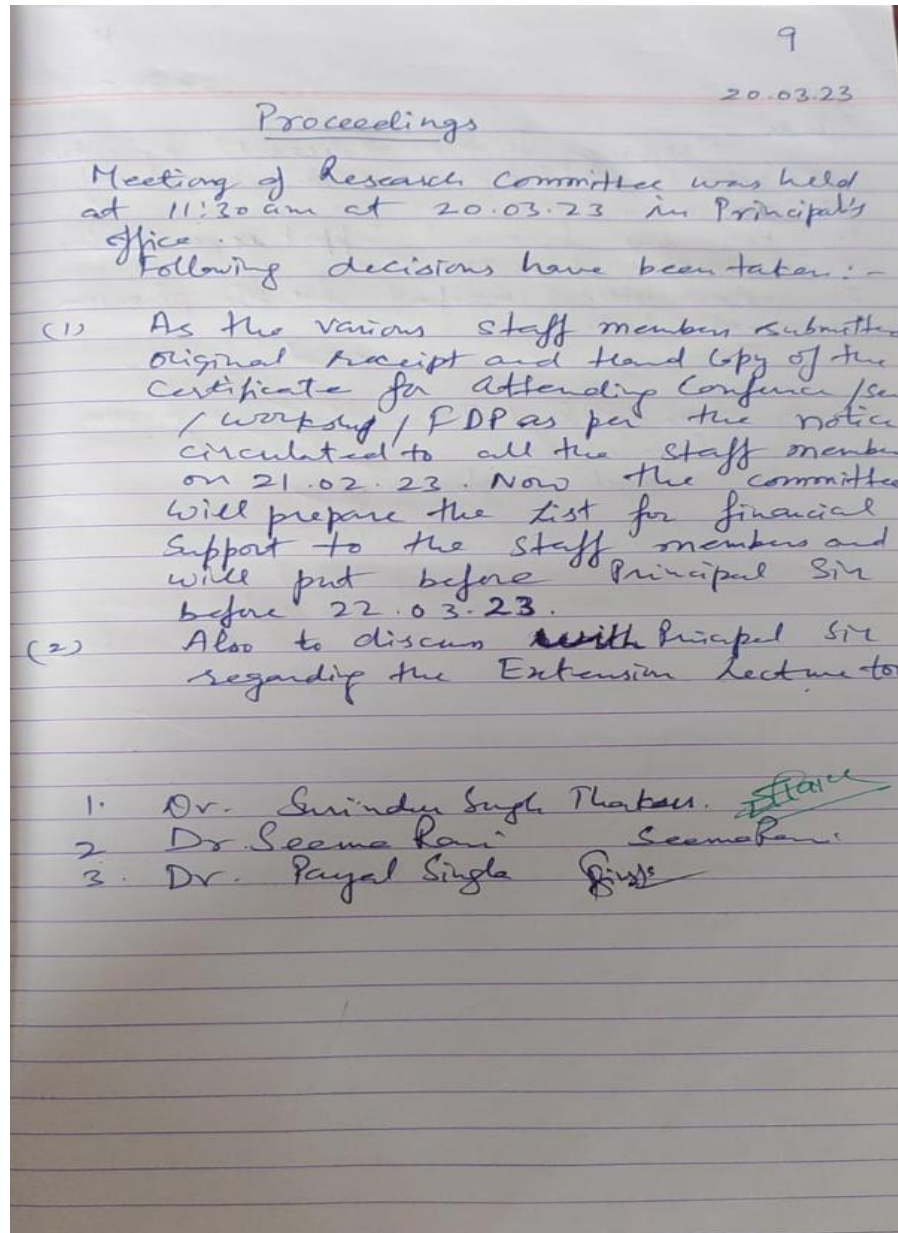 9
20.03.23
Proceedings
Meeting of Research Committee was held
at 11:30 am at 20.03.23 in Principal's
office.
Following decisions have been taken:-
(1) As the various staff members submitted
original receipt and Hard Copy of the
Certificate for attending Confernce /Se
/ workshop / FDP as per the notice
circulated to all the staff member
on 21.02.23. Now the committee
will prepare the List for financial
Support to the staff members and
will put before Principal Sir
before 22.03.23.
(2) Also to discuss with Principal Sir
regarding the Extension Lecture to
1. Dr. Surinder Singh
2 Dr Seema Rani SeemaRani
3. Dr. Payal Singla